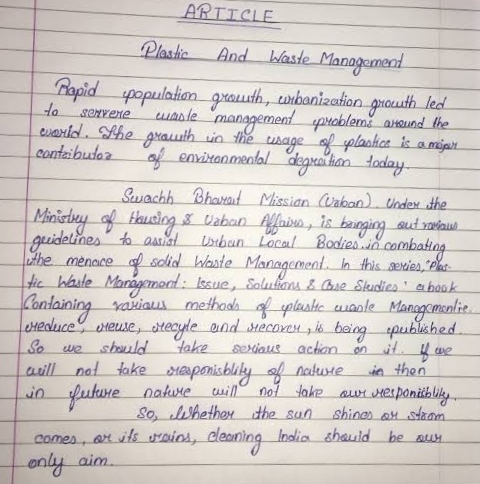 ARTICLE
Plastic And Waste Management
Rapid population growth, urbanization growth led
to servere waste mangement problems around the
world. The growth in the usage of plastics is a major
contributor of environmental degration today.
Swachh Bharat Mission (Urban). Under the
Ministry of Housing & Urban Affairs, is bringing out various
guidelines to assist Urban Local Bodies in combating
the menace of solid Waste Management. In this series, "Plas-
tic Waste Management: Issue, Solutions & Case Studies' a book
Containing various methods of plastic waste Managemenlie.
reduce, reuse, recycle and recover, is being published.
So we should take serious action on it. If we
will not take responisblity of nature in then
in future nature will not take our responisblily.
So, Whether the sun shines or strom
comes, or its rains, cleaning India should be our
only aim.